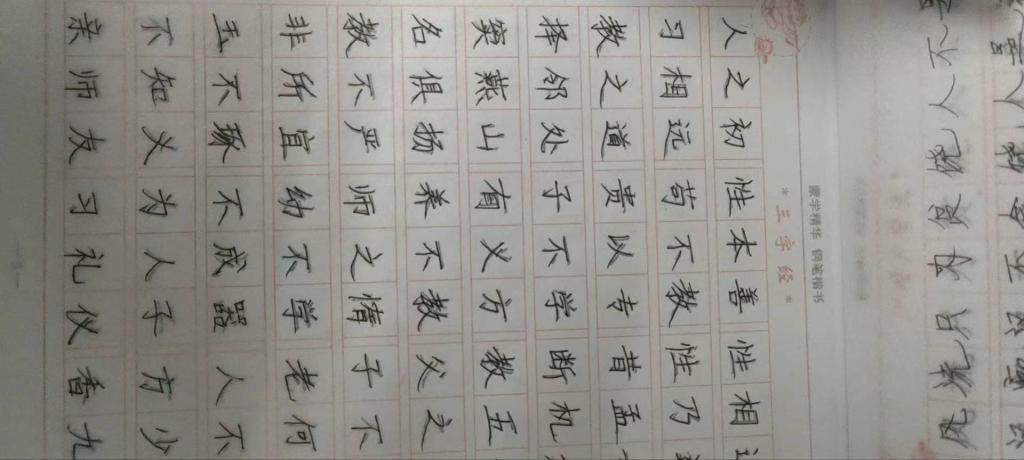 蒙学精华 钢笔楷书
三字经
人之初性本善性相
习相远苟不教性乃
教之道贵以专昔孟
择邻处子不学断机
窦燕山有义方教五
名俱扬养不教父之
教不严师之惰子不
非所宜幼不学老何
玉不琢不成器人不
不知义为人子方少
亲师友习礼仪香九